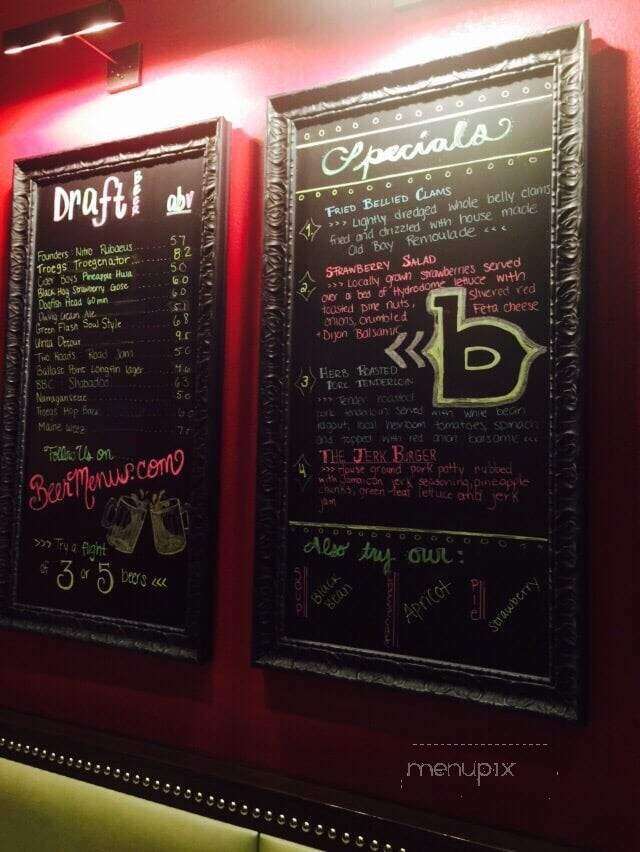 Draft BEER abv
Founders Nitro Rubaeus 5.7
Troegs Troegenator 8.2
Cider Boys Pineapple Hula 5.0
Black Hog Strawberry Gose 6.0
Dogfish Head 60 min 6.0
Cream Ale
Green Flash Soul Style 6.8
Detour 9.5
Two Roads Road Jam 5.0
Ballast Point Longfin lager
BBC Shabadoo 6.3
Narragansett 5.0
Troegs Hop Back 6.0
Maine
Follow Us on
BeerMenus.com
>>> Try a flight
of 3 or 5 beers <<<
Specials
1 Fried Bellied Clams
>>> Lightly dredged whole belly clams
fried and drizzled with house made
Old Bay Remoulade <<<
2 Strawberry Salad
>>> Locally grown strawberries served
over a bed of Hydrodome lettuce with
toasted pine nuts, slivered red
onions, crumbled Feta cheese
+ Dijon Balsamic
b
3 Herb Roasted
Pork Tenderloin
>>> Tender roasted
pork tenderloin served with white bean
ragout, local heirloom tomatoes, spinach
and topped with red onion balsamic <<<
4 The Jerk Burger
>>> House ground pork patty rubbed
with Jamaican jerk seasoning, pineapple
chunks, green leaf lettuce and jerk
jam
Also try our:
Soup Black Bean
Apricot
Pie Strawberry
menupix